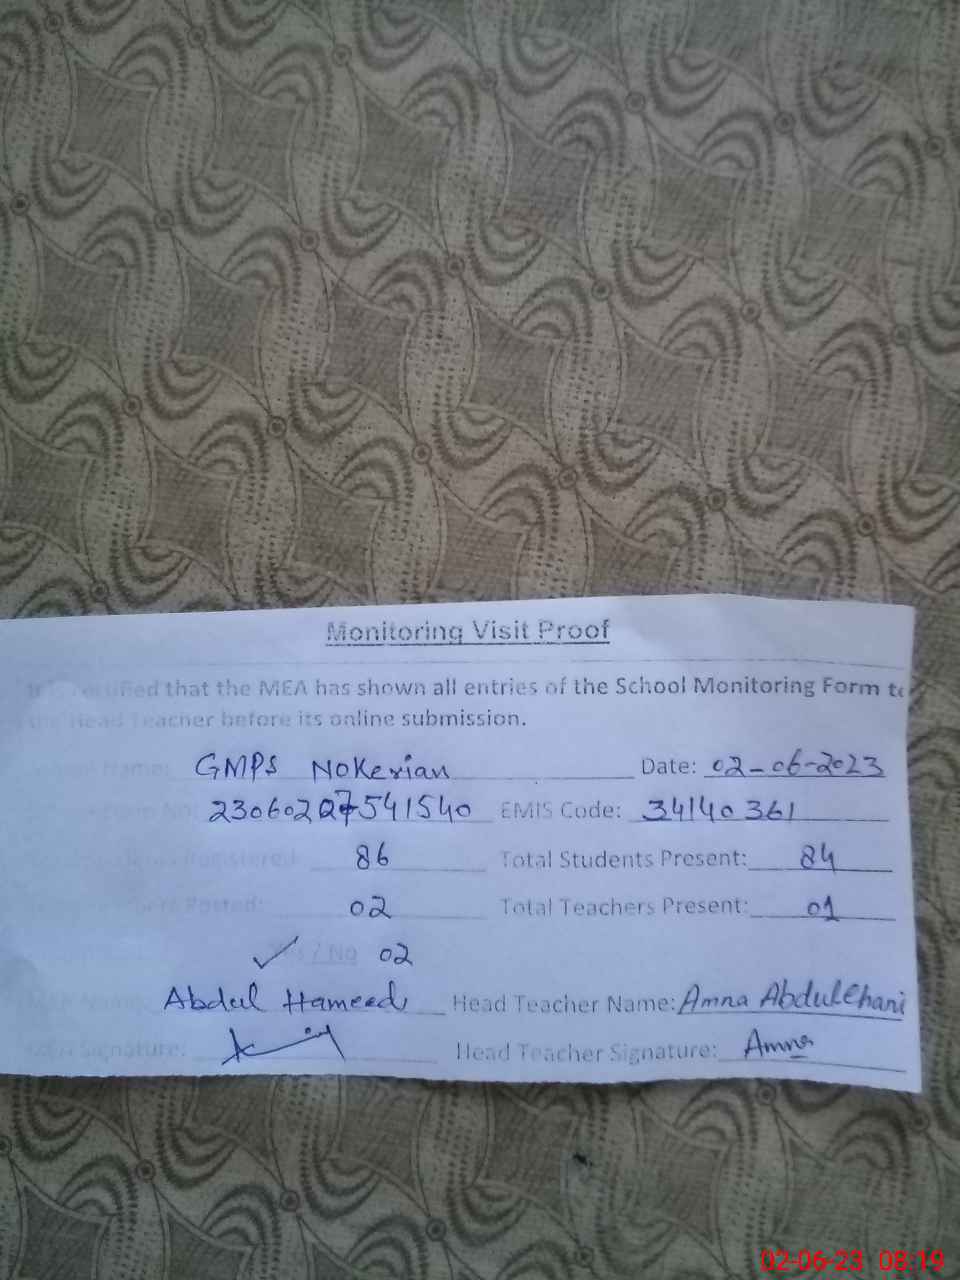 Monitoring Visit Proof
It is certified that the MEA has shown all entries of the School Monitoring Form to
the Head Teacher before its online submission.
Name: GMPS Nokerian Date: 02-06-2023
No: EMIS Code: 34140361
Registered: 86 Total Students Present: 84
Posted: 02 Total Teachers Present: 01
Yes / No 02
Name: Abdul Hameed Head Teacher Name: Amna Abdul Ghani
Signature: Head Teacher Signature: Amna
02-06-23 08:19